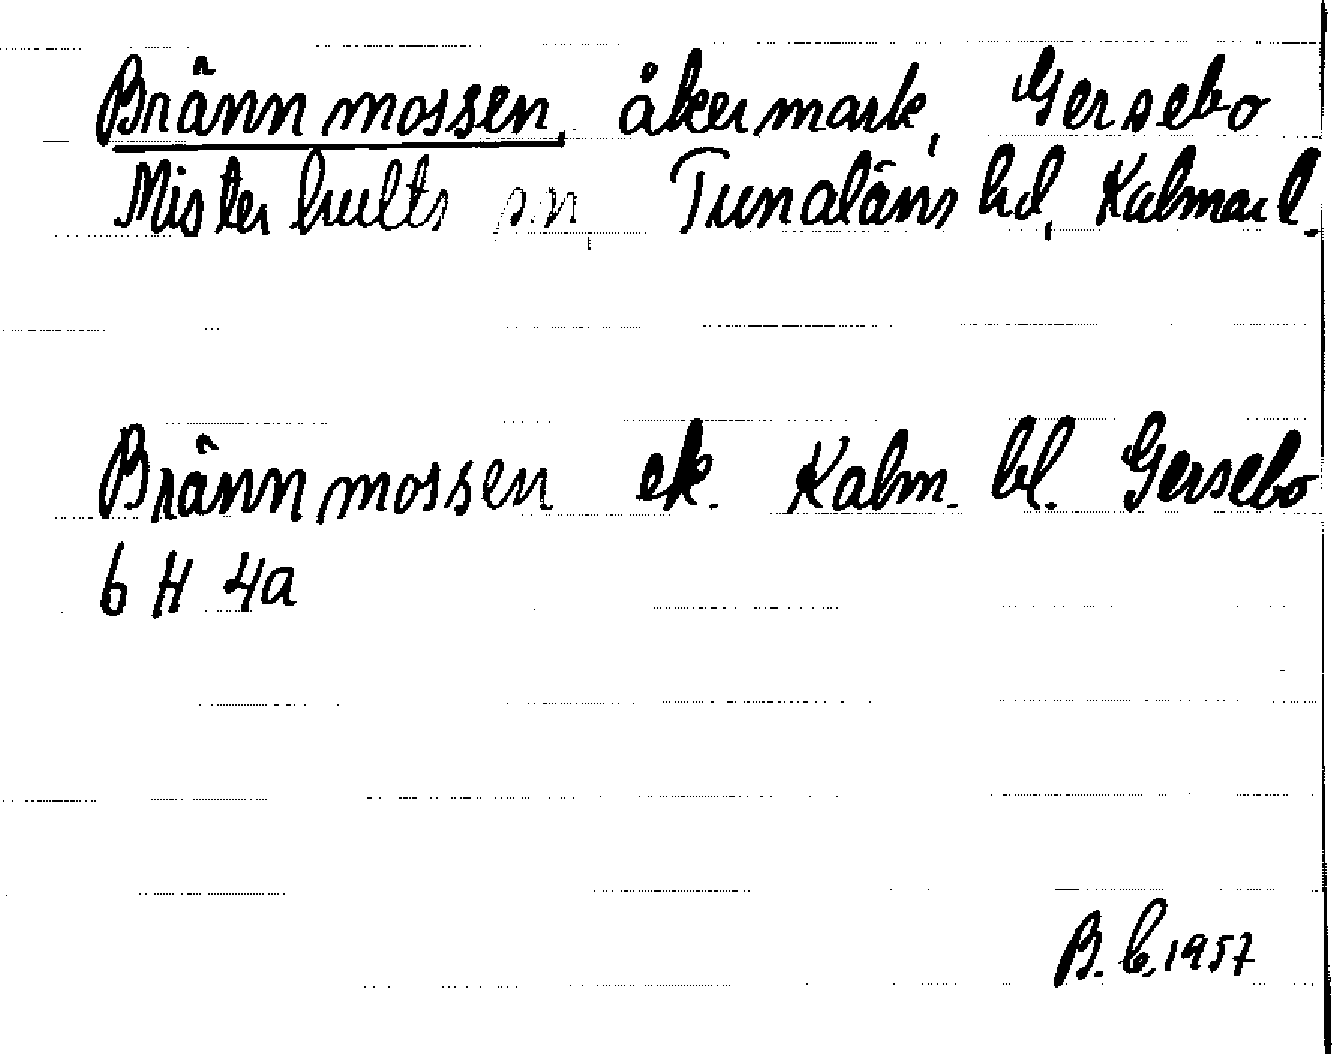 Brännmossen, åkermark, Gersebo
Misterhults sn, Tunaläns hd, Kalmar l.
Brännmossen ek. Kalm. bl. Gersebo
6 H 4a
B. C. 1957